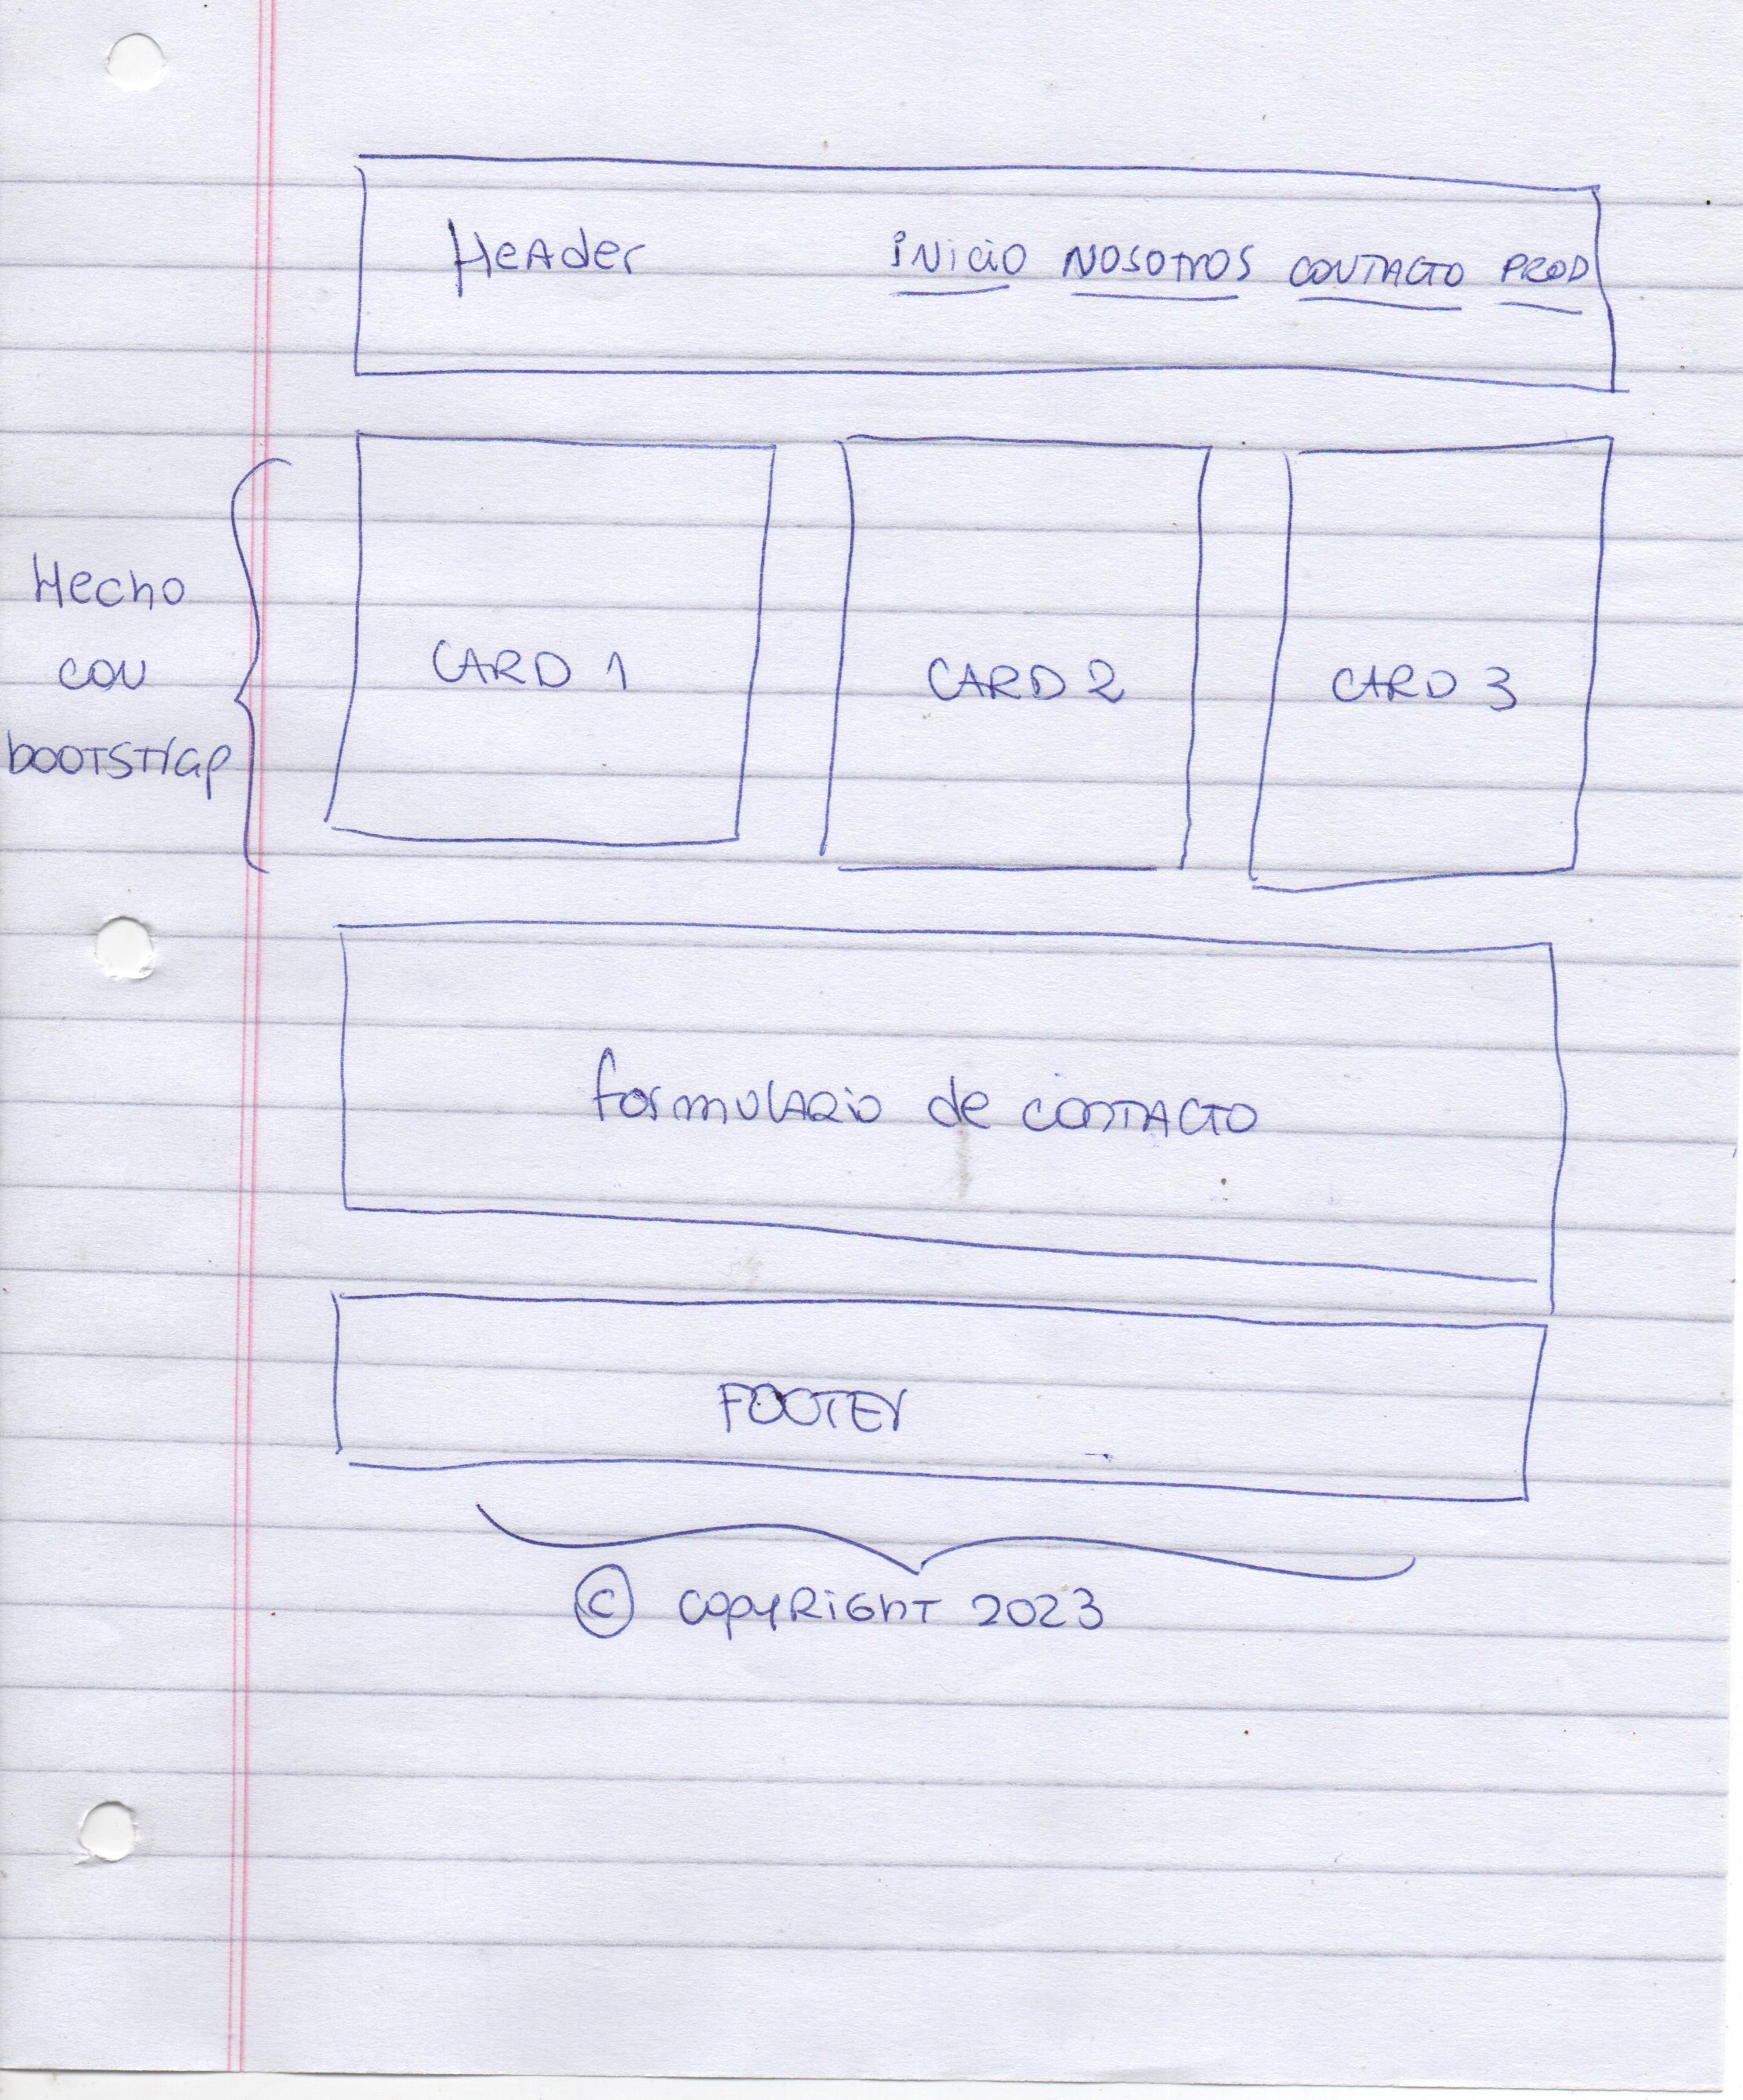 Header INICIO NOSOTROS CONTACTO PROD
Hecho
con
bootstrap
CARD 1 CARD 2 CARD 3
formulario de contacto
FOOTER
© copyRight 2023